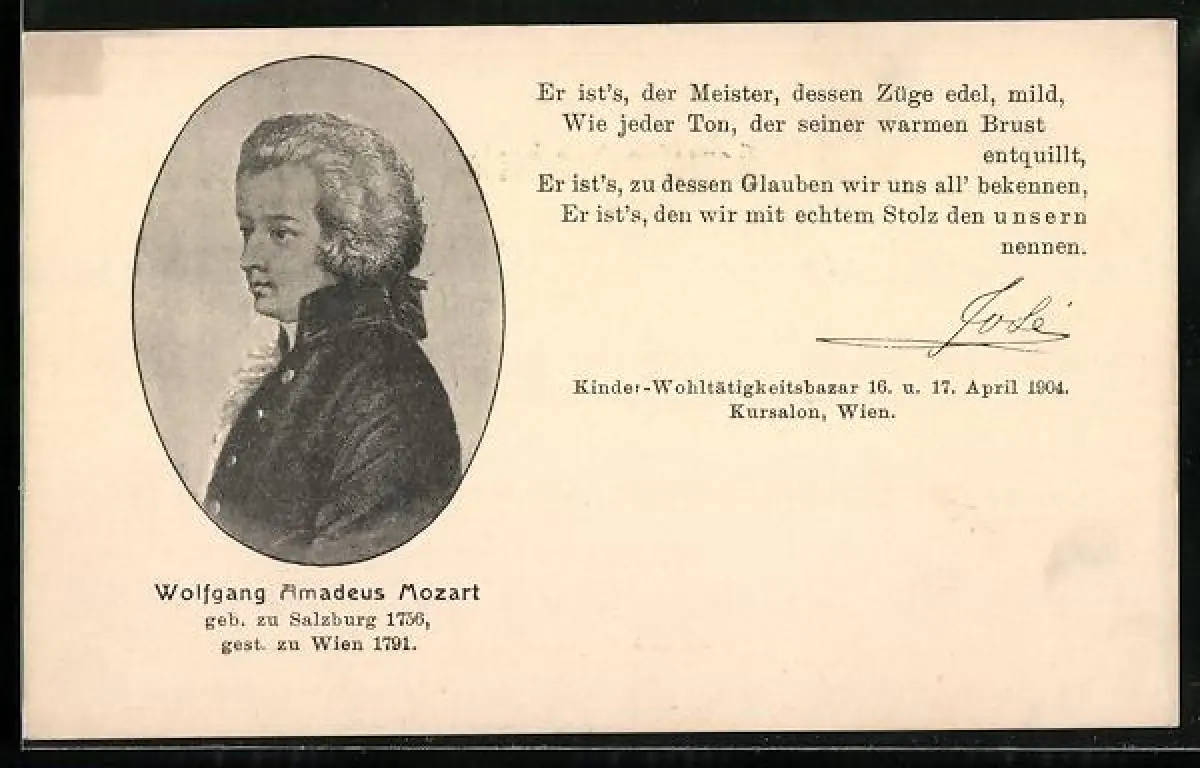 Er ist's, der Meister, dessen Züge edel, mild,
Wie jeder Ton, der seiner warmen Brust
entquillt,
Er ist's, zu dessen Glauben wir uns all' bekennen,
Er ist's, den wir mit echtem Stolz den unsern
nennen.
José
Kinder-Wohltätigkeitsbazar 16. u. 17. April 1904.
Kursalon, Wien.
Wolfgang Amadeus Mozart
geb. zu Salzburg 1756,
gest. zu Wien 1791.